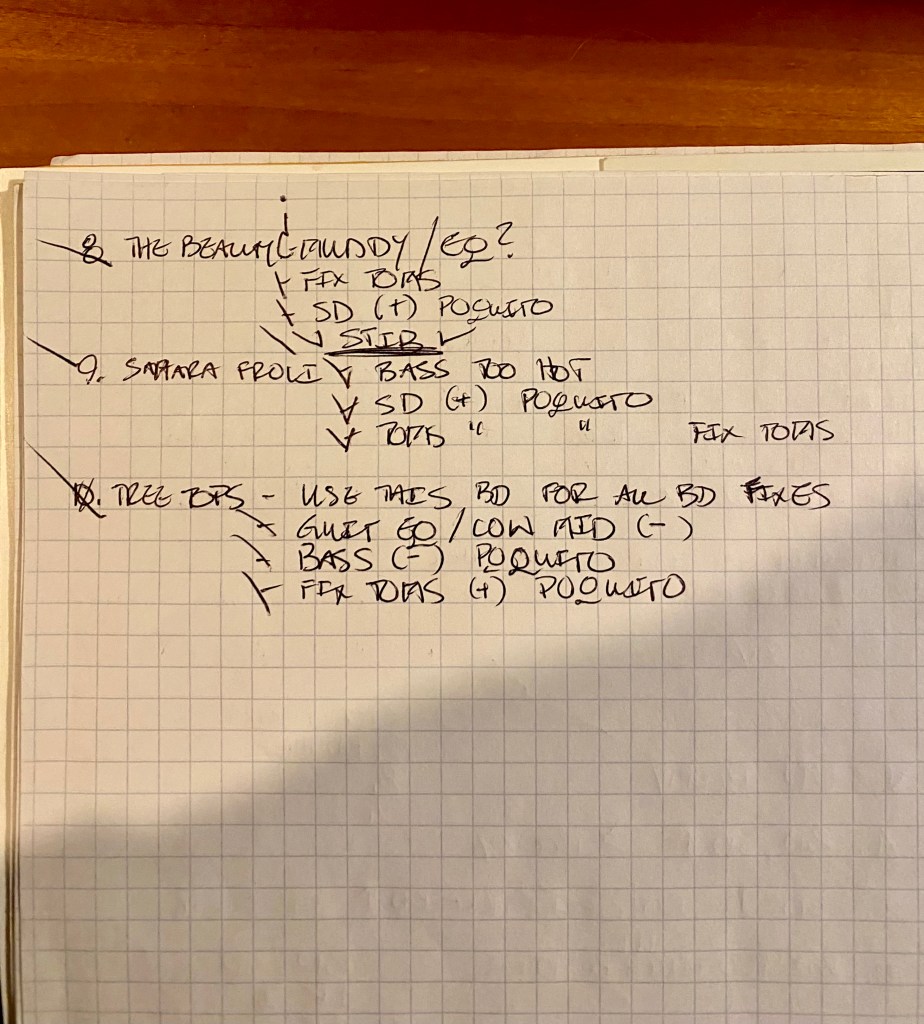 8. THE BEAUTY - MUDDY / EQ?
- FIX TOMS
- SD (+) POQUITO
STIR
9. SAHARA FROLI - BASS TOO HOT
- SD (+) POQUITO
- TOMS " " FIX TOMS
10. TREE TOPS - USE THIS BD FOR ALL BD FIXES
- GUIT EQ / LOW MID (-)
- BASS (-) POQUITO
- FIX TOMS (+) POQUITO